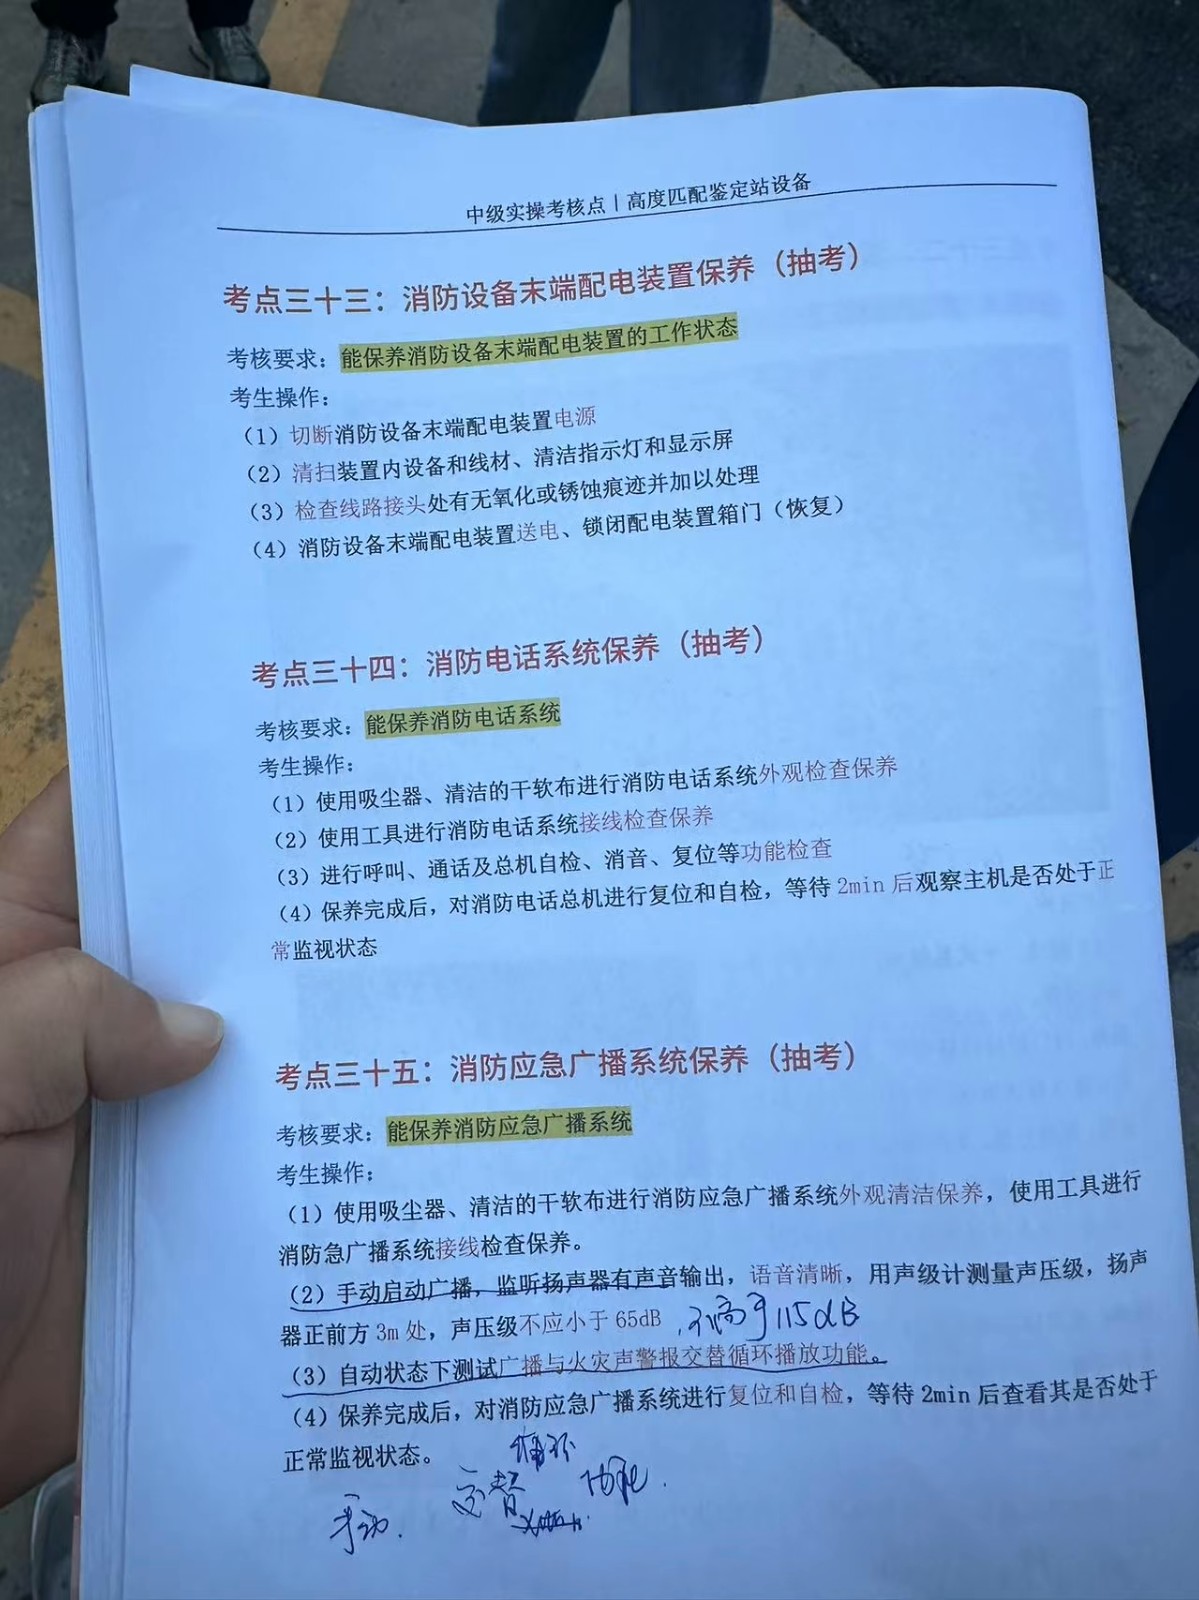 中级实操考核点 | 高度匹配鉴定站设备
考点三十三：消防设备末端配电装置保养（抽考）
考核要求：能保养消防设备末端配电装置的工作状态
考生操作：
（1）切断消防设备末端配电装置电源
（2）清扫装置内设备和线材、清洁指示灯和显示屏
（3）检查线路接头处有无氧化或锈蚀痕迹并加以处理
（4）消防设备末端配电装置送电、锁闭配电装置箱门（恢复）
考点三十四：消防电话系统保养（抽考）
考核要求：能保养消防电话系统
考生操作：
（1）使用吸尘器、清洁的干软布进行消防电话系统外观检查保养
（2）使用工具进行消防电话系统接线检查保养
（3）进行呼叫、通话及总机自检、消音、复位等功能检查
（4）保养完成后，对消防电话总机进行复位和自检，等待 2min 后观察主机是否处于正
常监视状态
考点三十五：消防应急广播系统保养（抽考）
考核要求：能保养消防应急广播系统
考生操作：
（1）使用吸尘器、清洁的干软布进行消防应急广播系统外观清洁保养，使用工具进行
消防急广播系统接线检查保养。
（2）手动启动广播，监听扬声器有声音输出，语音清晰，用声级计测量声压级，扬声
器正前方 3m 处，声压级不应小于 65dB，不高于115dB
（3）自动状态下测试广播与火灾声警报交替循环播放功能。
（4）保养完成后，对消防应急广播系统进行复位和自检，等待 2min 后查看其是否处于
正常监视状态。
循环
手动. 交替 功能.